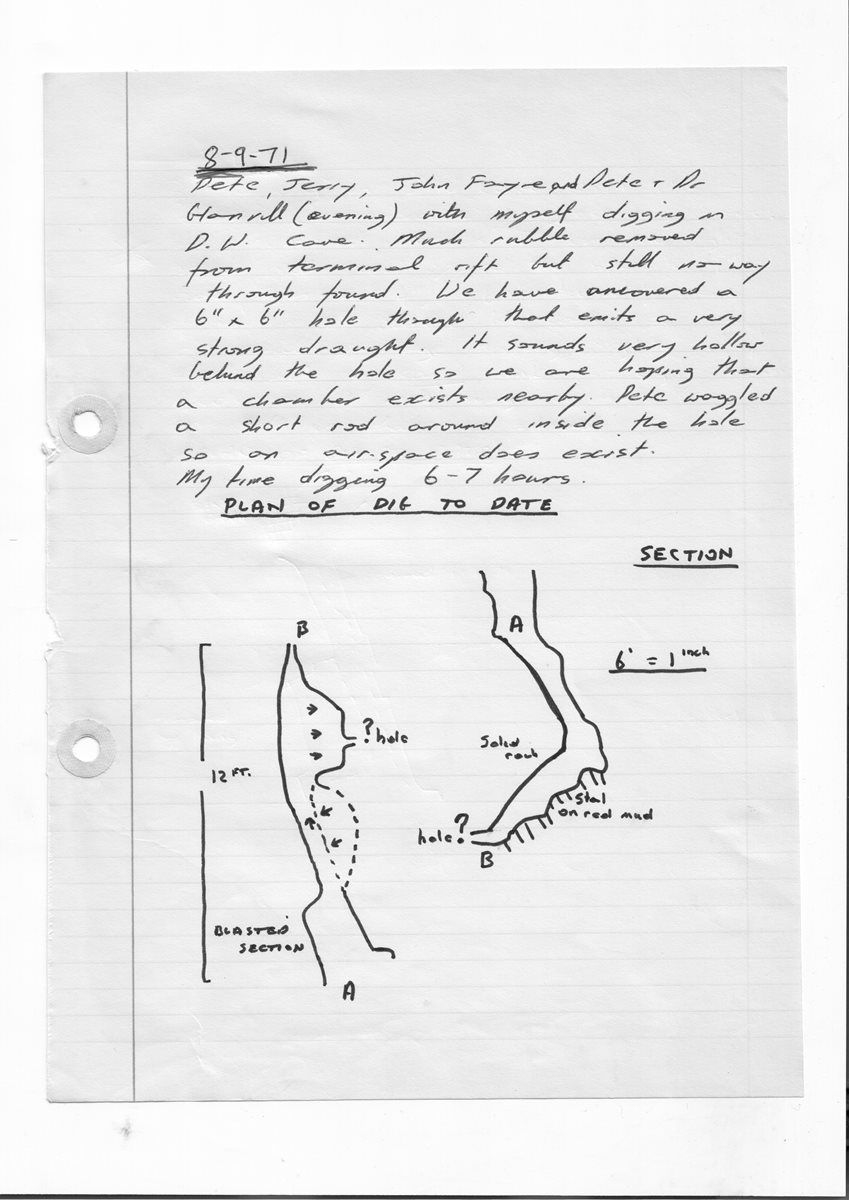 8-9-71
Pete, Jerry, John Fayre and Pete + Dr
Glanvill (evening) with myself digging in
D. W. Cave. Much rubble removed
from terminal rift but still no way
through found. We have uncovered a
6" x 6" hole through that emits a very
strong draught. It sounds very hollow
behind the hole so we are hoping that
a chamber exists nearby. Pete waggled
a short rod around inside the hole
so an air-space does exist.
My time digging 6-7 hours.
PLAN OF DIG TO DATE
SECTION
A
B
6' = 1 inch
? hole
Solid
rock
12 FT.
Stal
on red mud
hole ?
B
BLASTED
SECTION
A